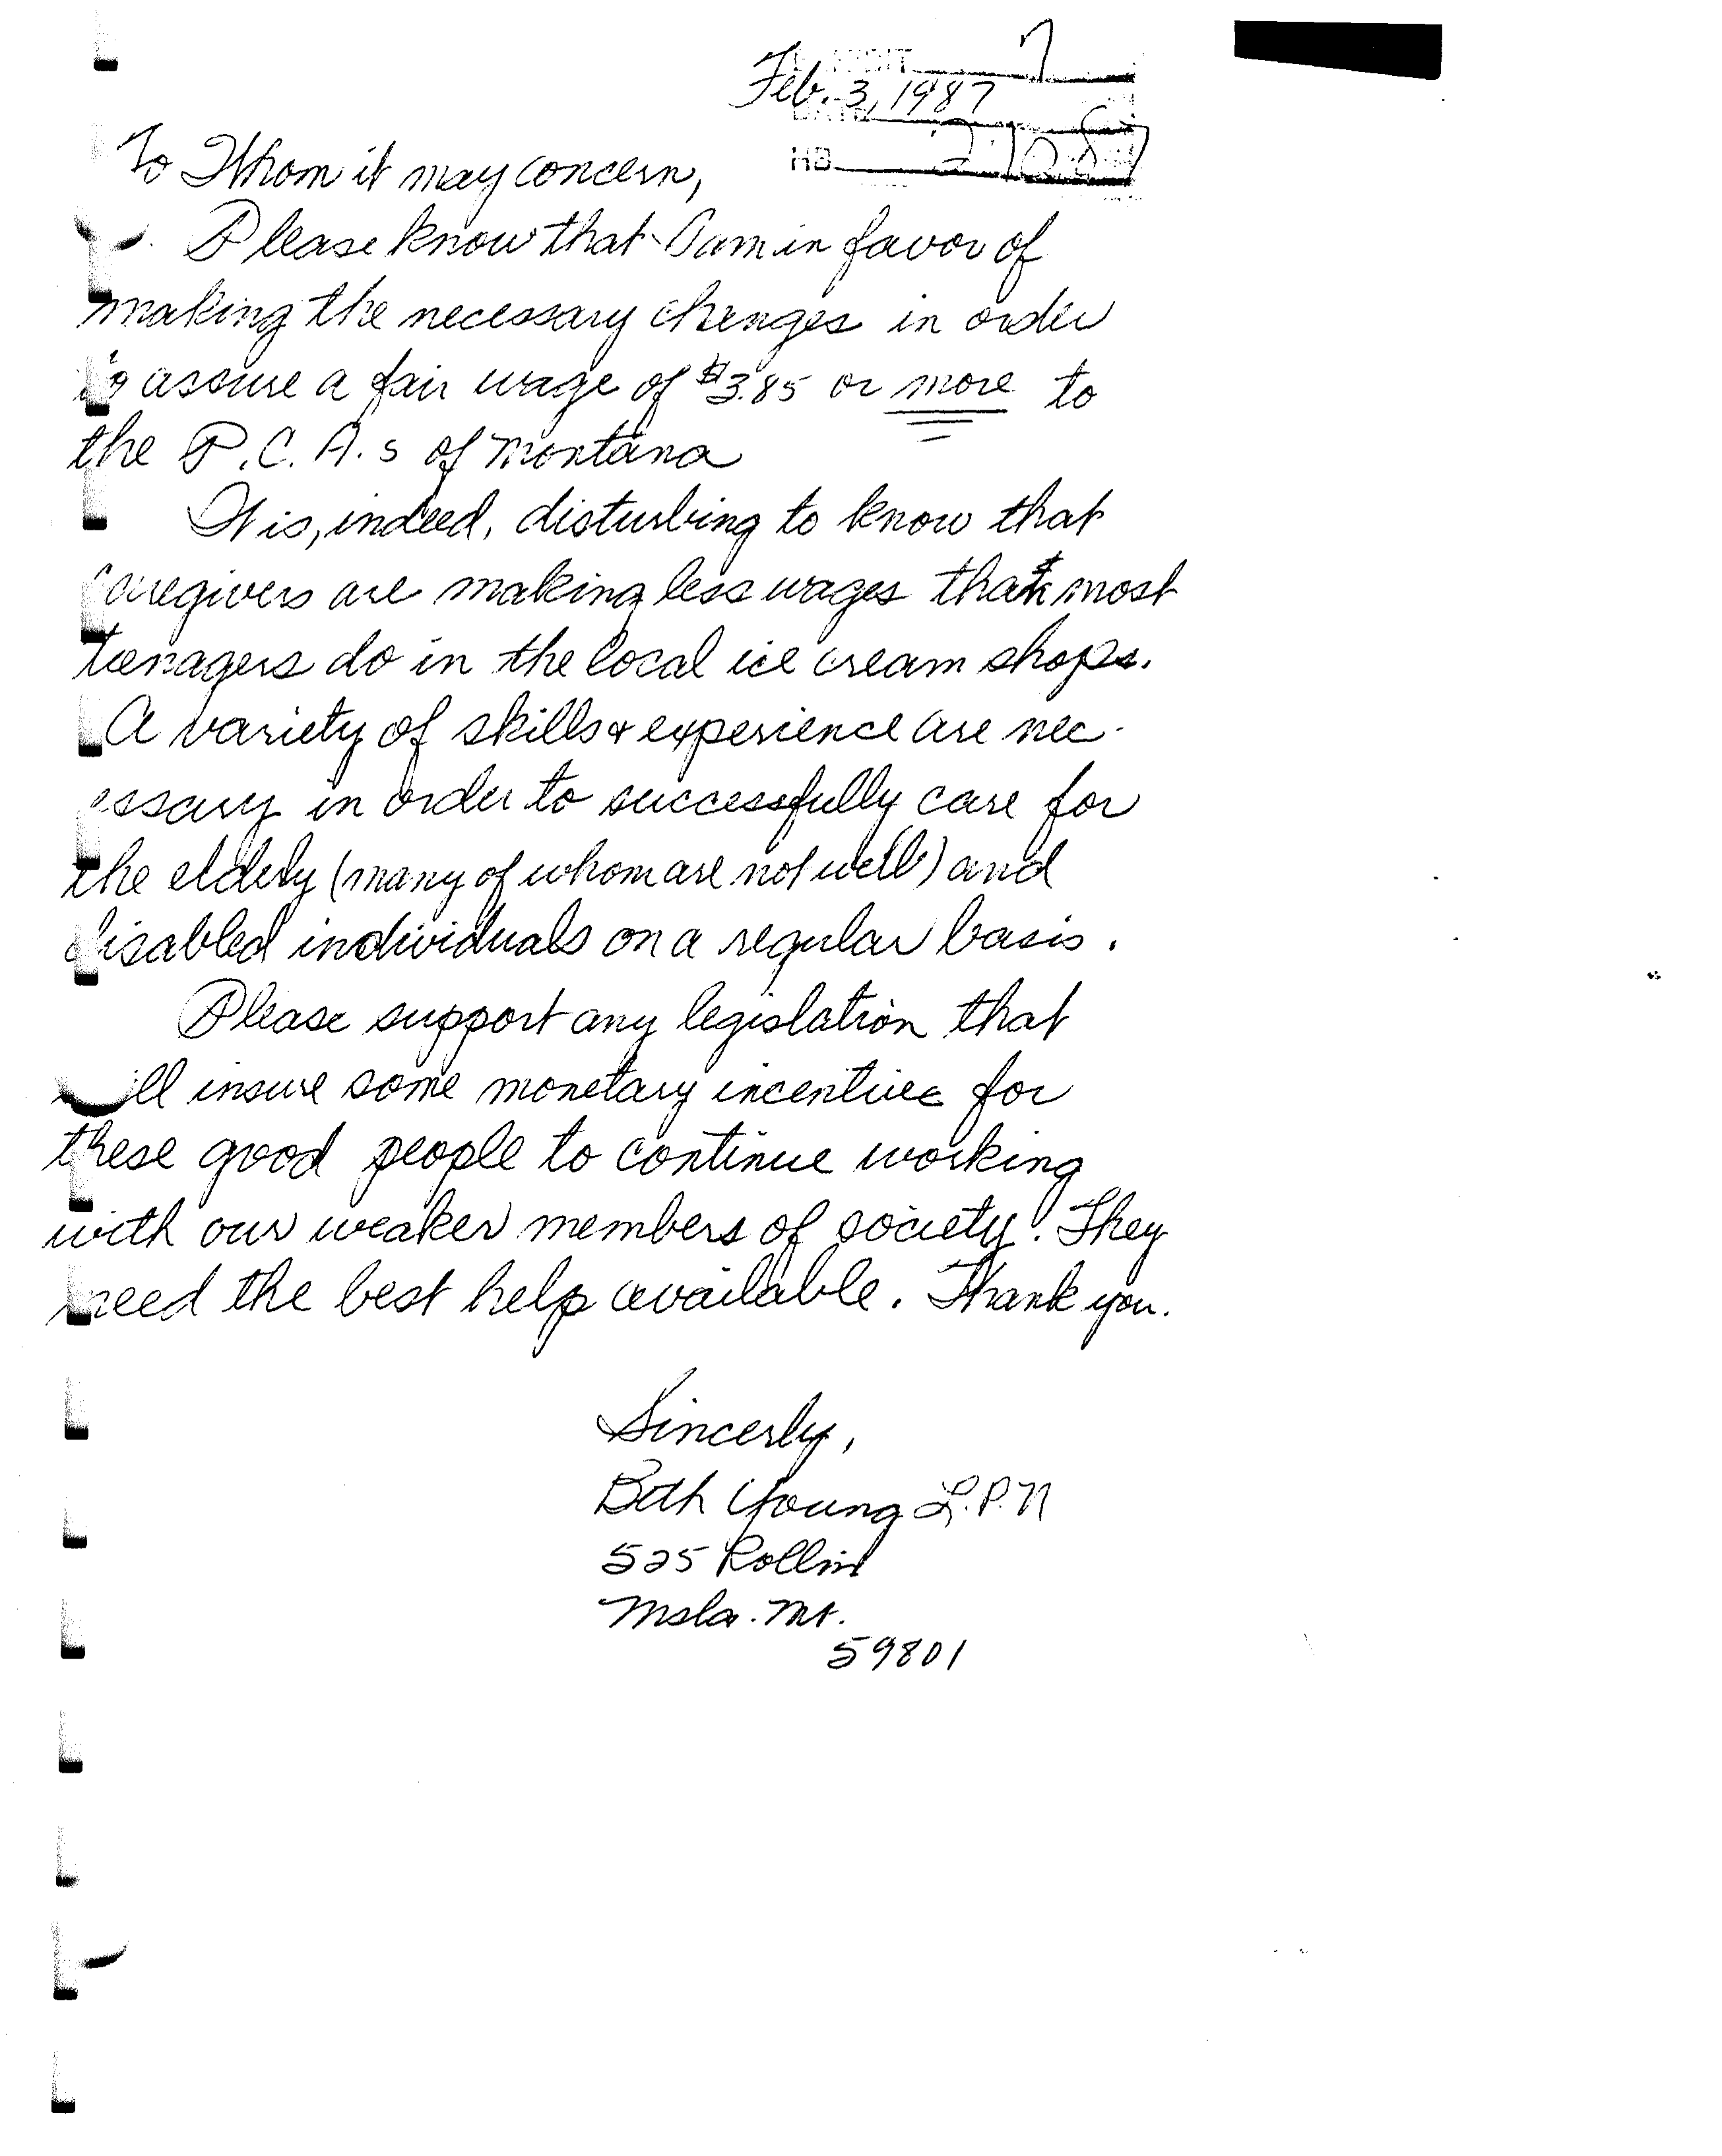 7
Feb. 3, 1987
DATE
HB
To Whom it may concern,
Please know that I am in favor of
making the necessary changes in order
to assure a fair wage of $3.85 or more to
the P.C.A.s of Montana
It is, indeed, disturbing to know that
caregivers are making less wages than most
teenagers do in the local ice cream shops.
A variety of skills & experience are nec-
essary in order to successfully care for
the elderly (many of whom are not well) and
disabled individuals on a regular basis.
Please support any legislation that
will insure some monetary incentive for
these good people to continue working
with our weaker members of society! They
need the best help available. Thank you.
Sincerly,
Beth Young L.P.N
525 Rollin
Msla. Mt.
59801